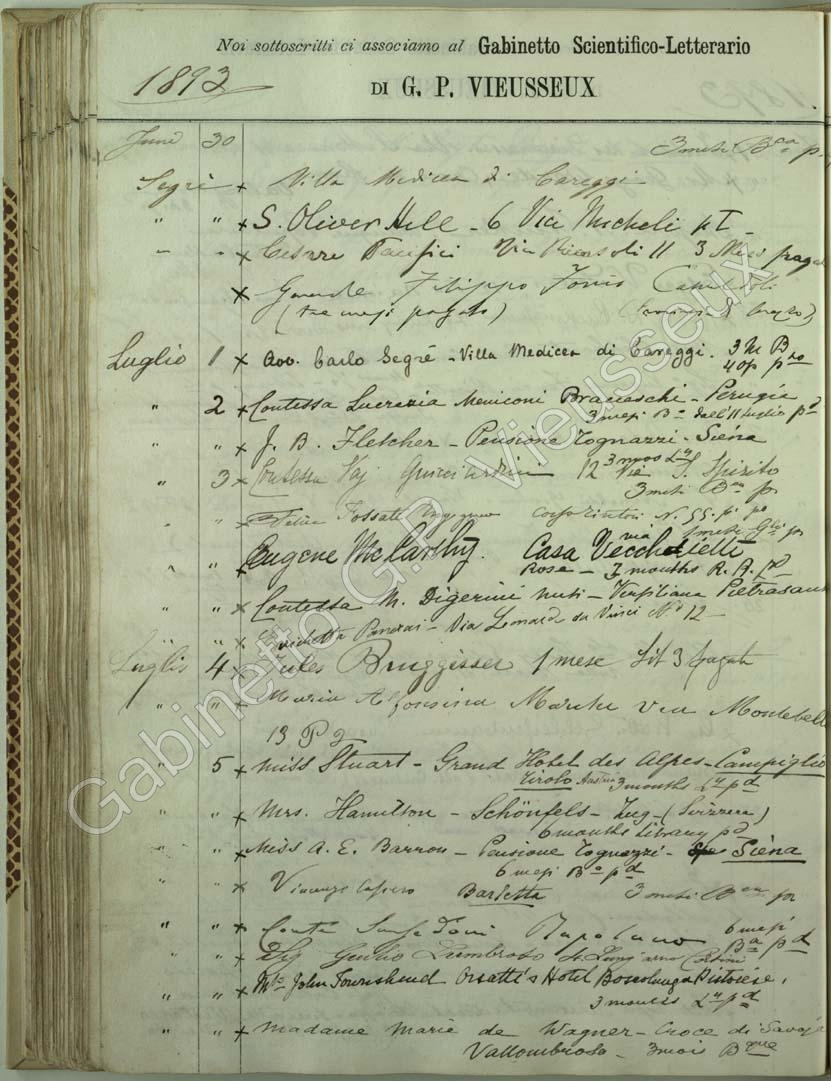 Noi sottoscritti ci associamo al Gabinetto Scientifico-Letterario
1893 DI G. P. VIEUSSEUX
June 30 3 mesi Bca p.
Segrè x Villa Medicea di Careggi
" " x S. Oliver Hill - 6 Vici Micheli pt I
" " x Cesare Pacifici Via 11 3 Mesi
x Filippo Camaldoli
(tre mesi pagato)
Luglio 1 x Avv. Carlo Segrè - Villa Medicea di Careggi. 3 M B
" 2 x Contessa Lucrezia Meniconi Bracceschi - Perugia
3 mesi Ba dall'11 Luglio pd
" " x J. B. Fletcher - Pensione Tognazzi - Siéna
3 mos
" 3 x Contessa Guicciardini 12 Via S. Spirito
3 mesi p
Fossati N. 55
via 1 mese p
" " x Eugene McCarthy. Casa Vecchietti
Rose - 3 months R. R. pd
" " x Contessa M. Digerini Nuti - Versiliana Pietrasanta
" " x Enrichetta Panerai - Via Leonardo da Vinci No 12
Luglio 4 x Jules Bruggisser 1 mese Lit 3 pagate
" " x Maria Alfonsina via Montebello
13 P 2
" 5 x Miss Stuart - Grand Hotel des Alpes - Campiglio
Tirolo Austria 3 months Ly pd
" " x Mrs. Hamilton - Schönfels - Zug - (Svizzera)
6 months Library pd
" " x Miss A. E. Barron - Pensione Tognazzi - Siéna
6 mesi Ba pd
" " x Vincenzo Barletta 3 mesi
" " x Conte Napoletano 6 mesi
Ba pd
" " x Sig Giulio Lumbroso Lung'arno Corsini
" " x Mrs John Townshend Orsatti's Hotel Boscolungo Pistoiése,
3 months Ly pd
" " x Madame Marie de Wagner - Croce di Savoja
Vallombrosa - 3 mois Bque
Gabinetto G. P. Vieusseux